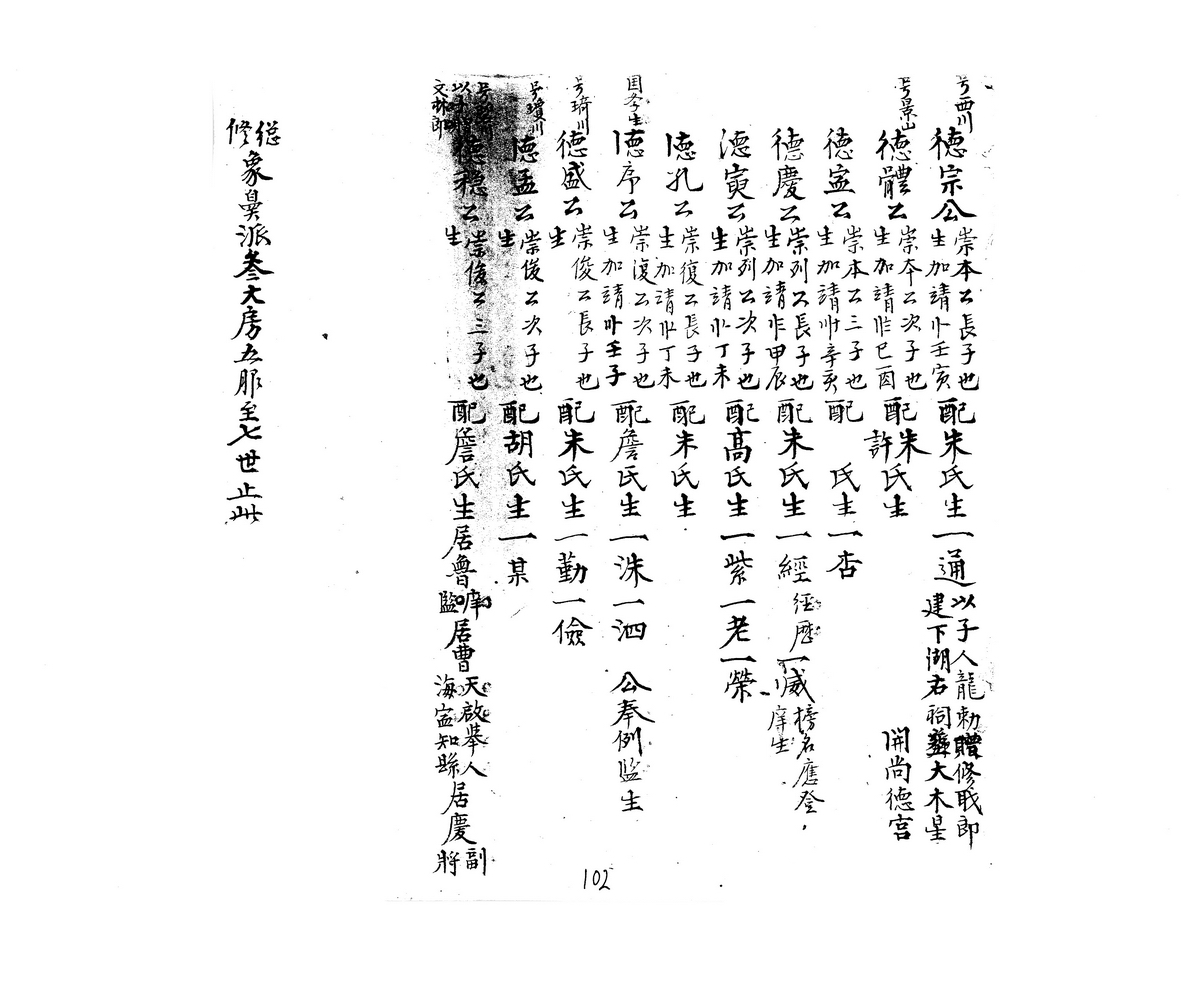 号西川 德宗公 崇本公長子也 生加靖壬寅 配朱氏生一通 以子人龍勅贈修职郎 建下湖右祠葬大木星
号景山 德體公 崇本公次子也 生加靖己酉 配朱許氏生 開尚德宫
德㝎公 崇本公三子也 生加靖辛亥 配 氏生一杏
德慶公 崇列公長子也 生加靖甲辰 配朱氏生一經 經歷 一威 榜名應登 庠生
德寅公 崇列公次子也 生加靖丁未 配高氏生一紫一老一榮
德孔公 崇復公長子也 生加靖丁未 配朱氏生
国学生 德序公 崇復公次子也 生加靖壬子 配詹氏生一洙一泗 公奉例监生
号琦川 德盛公 崇俊公長子也 生 配朱氏生一勤一儉
号瓊川 德孟公 崇俊公次子也 生 配胡氏生一某
文林郎 德穏公 崇俊公三子也 生 配詹氏生居魯 庠監 居曹 天啟举人海㝎知縣 居慶 副將
総修象鼻派叁大房五服至七世止此
102